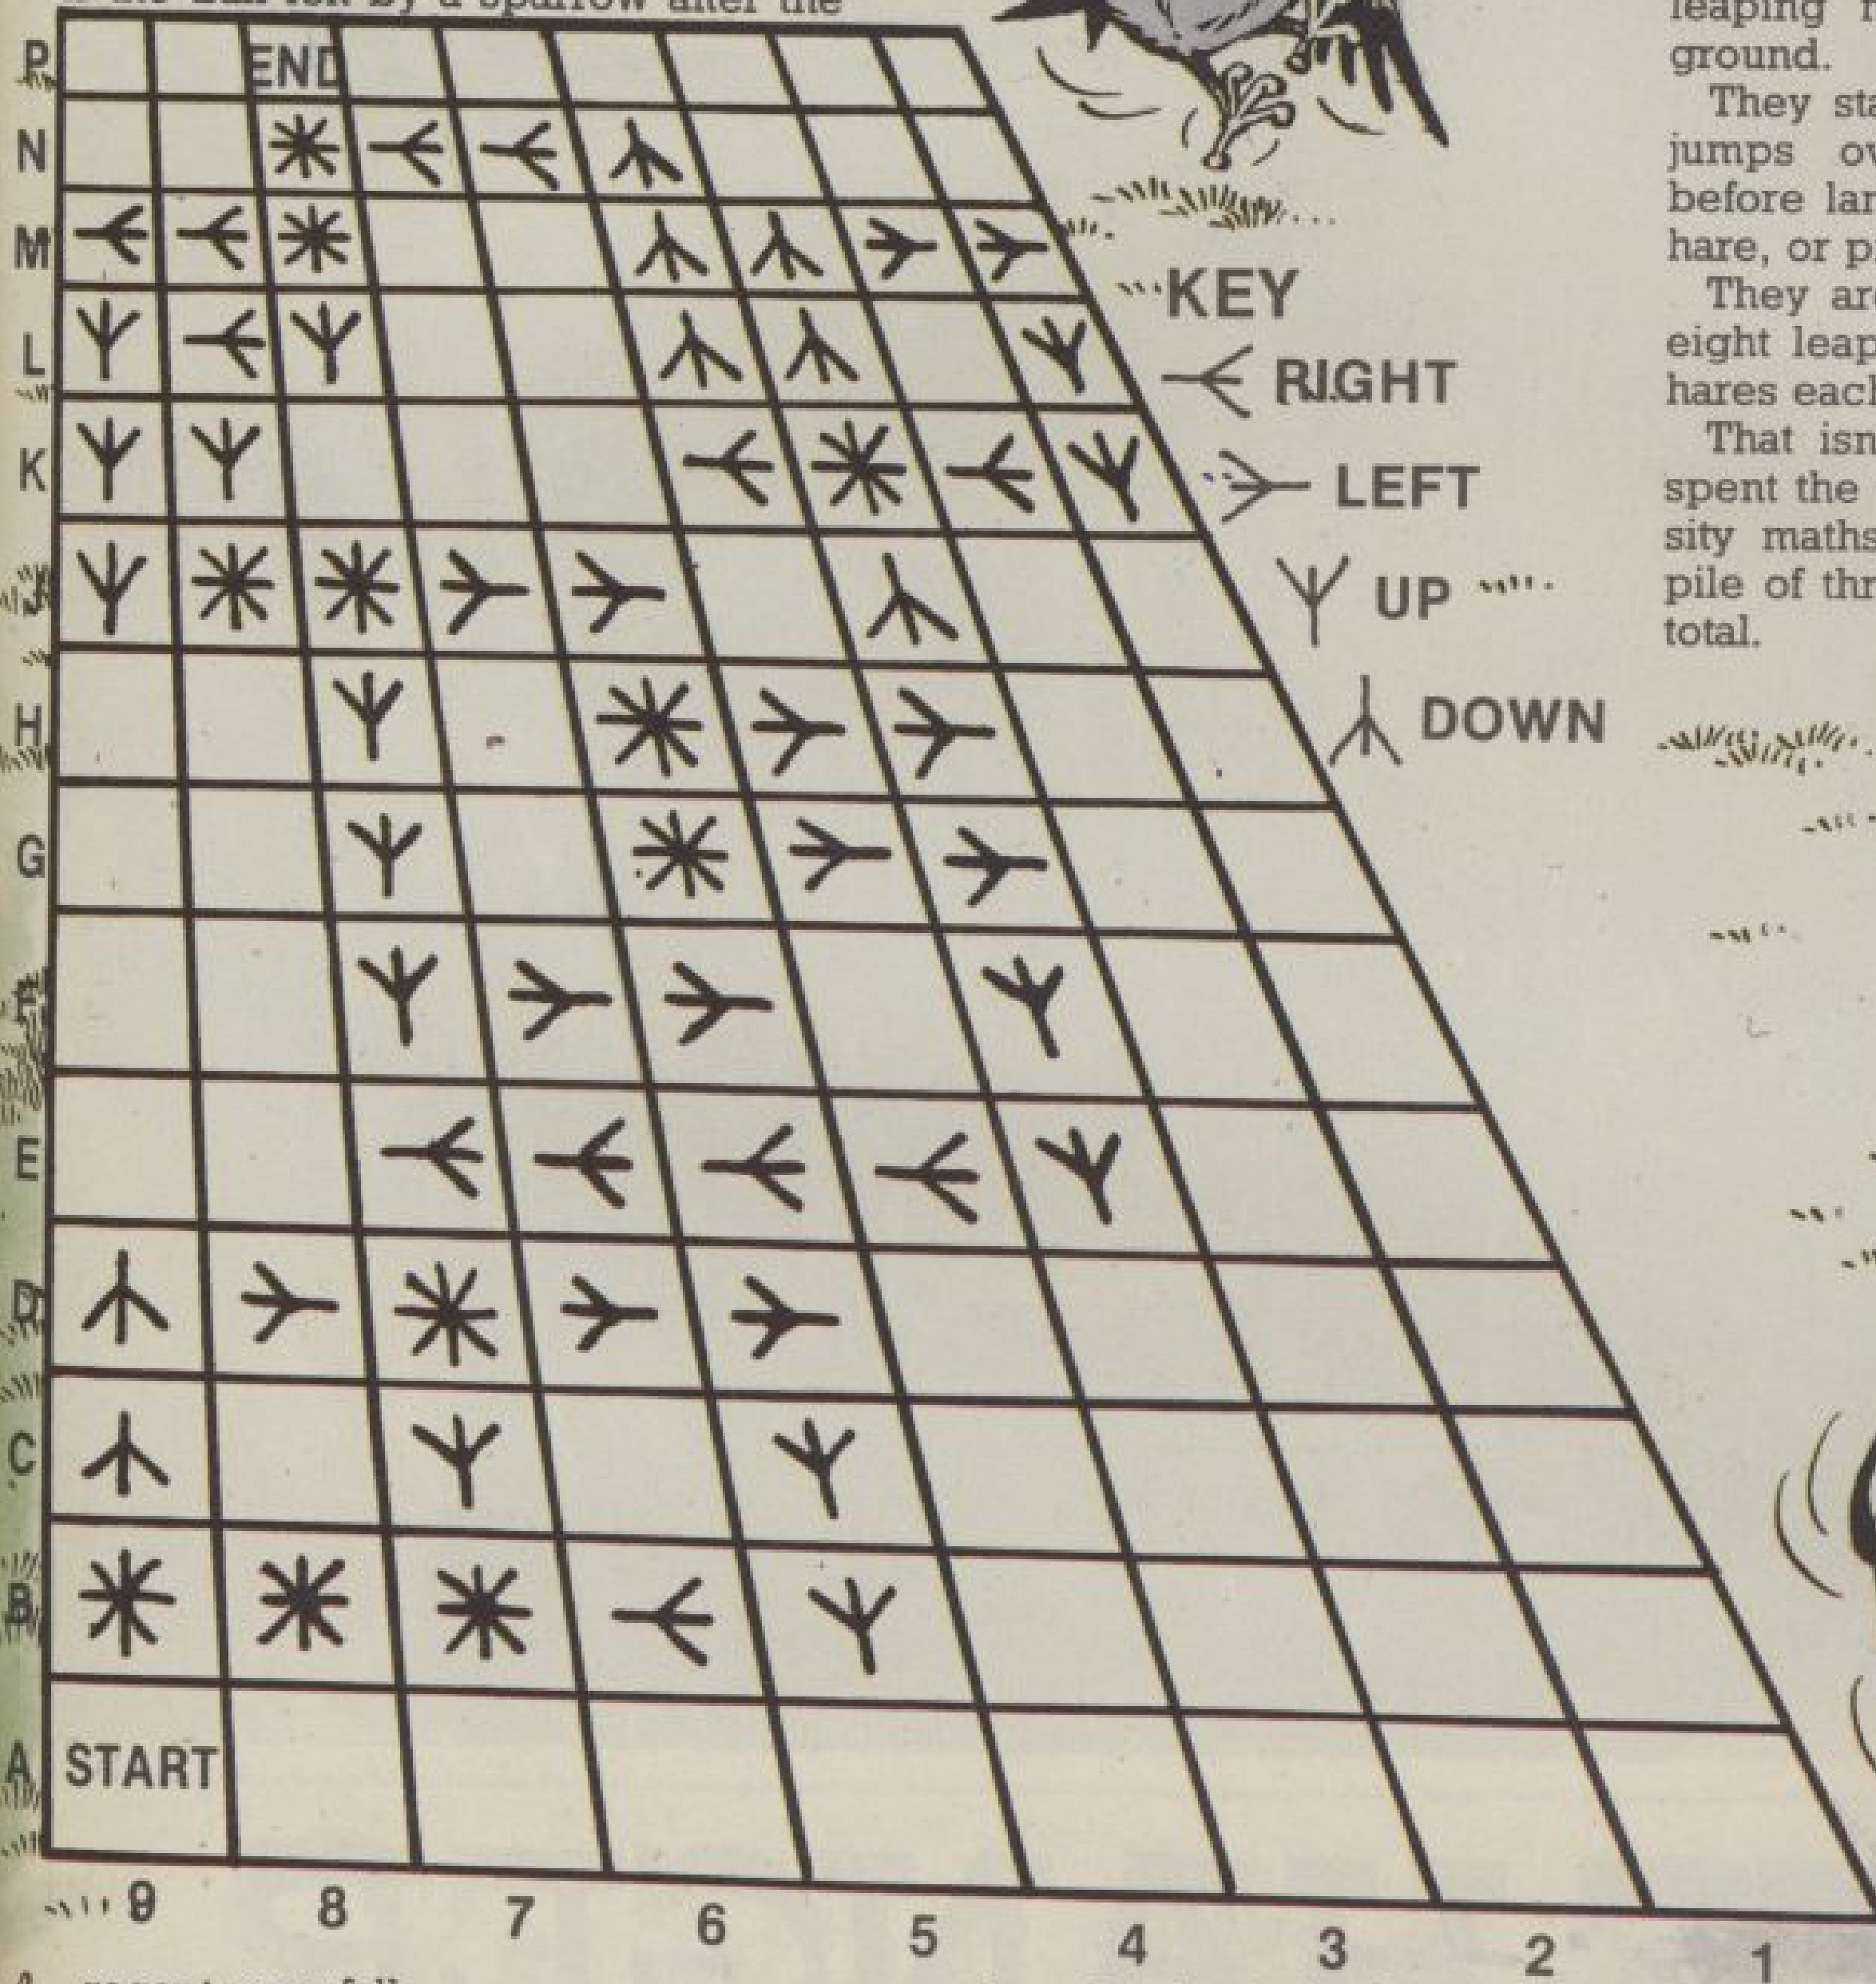 by a sparrow after the
P
END
N
M
L
K
J
H
G
F
E
D
C
B
A
START
9
8
7
6
5
4
3
2
1
KEY
RIGHT
LEFT
UP
DOWN
leaping
ground.
They sta
jumps ov
before lan
hare, or p
They are
eight leap
hares each
That isn
spent the
sity maths
pile of thr
total.